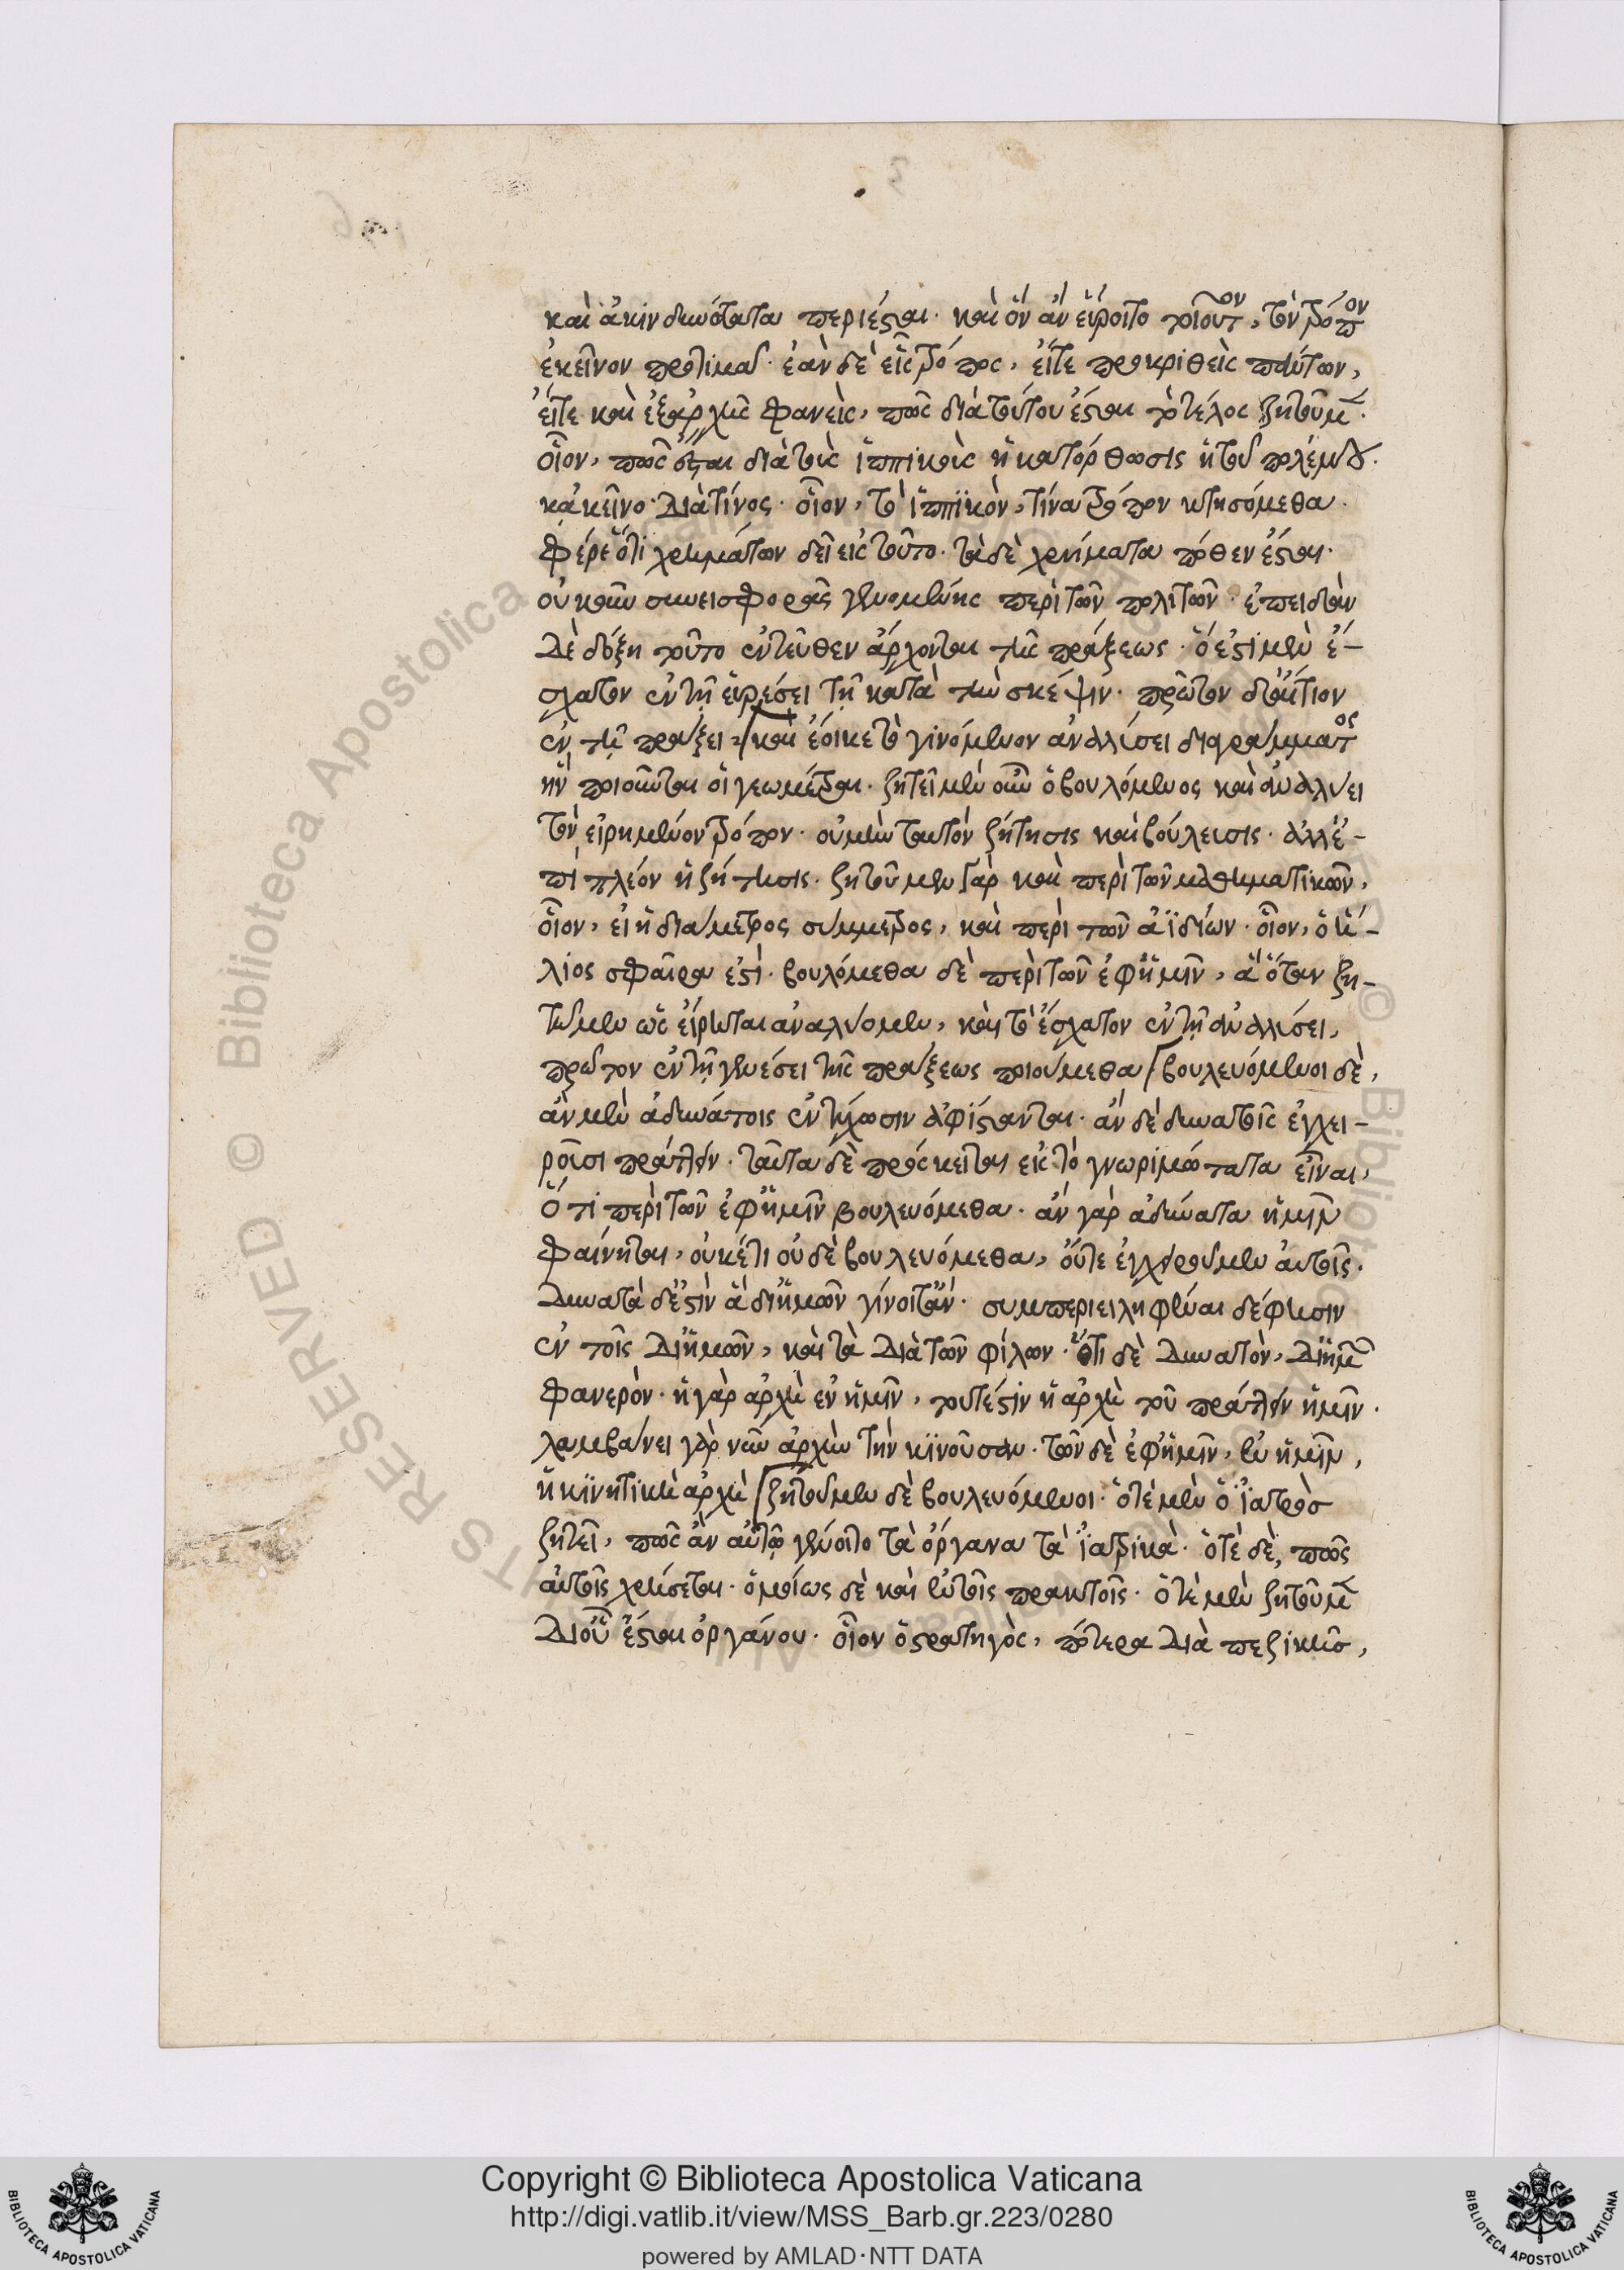 καὶ ἀκινδυνότατα περιέσται· καὶ ὃν ἂν εὕροιτο τοιοῦτον, τὸν τρόπον
ἐκεῖνον προτιμᾷ· ἐὰν δὲ εἷς τρόπος, εἴτε προκριθεὶς πάντων,
εἴτε καὶ ἐξαρχῆς φανεὶς, πῶς διὰ τούτου ἔσται τὸ τέλος ζητοῦμεν·
οἷον, πῶς ἔσται διὰ τῆς ἱππικῆς ἡ κατόρθωσις ἡ τοῦ πολέμου·
κἀκεῖνο διὰ τίνος· οἷον, τὸ ἱππικὸν, τίνα τρόπον κτησόμεθα·
φέρε ὅτι χρημάτων δεῖ εἰς τοῦτο· τὰ δὲ χρήματα πόθεν ἔσται·
οὐκοῦν συνεισφορᾶς γενομένης περὶ τῶν πολιτῶν· ἐπειδὰν
δὲ δόξη τοῦτο ἐντεῦθεν ἄρχονται τῆς πράξεως· ὅ ἐστι μὲν ἔ-
σχατον ἐν τῇ εὑρέσει τῇ κατὰ τὴν σκέψιν· πρῶτον δ' αἴτιον
ἐν τῇ πράξει, καὶ ἔοικε τὸ γινόμενον ἀναλύσει διαγράμματος
ἣν ποιοῦνται οἱ γεωμέτραι· ζητεῖ μὲν οὖν ὁ βουλόμενος καὶ ἀναλύει
τὸν εἰρημένον τρόπον· οὐ μὴν ταυτὸν ζήτησις καὶ βούλευσις· ἀλλ' ἐ-
πὶ πλέον ἡ ζήτησις· ζητοῦμεν γὰρ καὶ περὶ τῶν μαθηματικῶν,
οἷον, εἰ ἡ διάμετρος σύμμετρος, καὶ περὶ τῶν ἀϊδίων· οἷον, ὁ ἥ-
λιος σφαῖρα ἐστὶ· βουλόμεθα δὲ περὶ τῶν ἐφ' ἡμῖν, ἃ ὅταν ζη-
τῶμεν ὡς εἴρηται ἀναλύομεν, καὶ τὸ ἔσχατον ἐν τῇ ἀναλύσει,
πρῶτον ἐν τῇ γενέσει τῆς πράξεως ποιούμεθα βουλευόμενοι δὲ,
ἂν μὲν ἀδυνάτοις ἐντύχωσιν ἀφίστανται· ἂν δὲ δυνατοῖς ἐγχει-
ροῦσι πράττειν· ταῦτα δὲ πρόσκειται εἰς τὸ γνωριμώτατα εἶναι,
ὅτι περὶ τῶν ἐφ' ἡμῖν βουλευόμεθα· ἂν γὰρ ἀδύνατα ἡμῖν
φαίνηται, οὐκέτι οὐδὲ βουλευόμεθα, οὔτε ἐγχειροῦμεν αὐτοῖς·
δυνατὰ δ' ἐστὶν ἃ δι' ἡμῶν γίνοιτ' ἄν· συμπεριειληφέναι δέ φησιν
ἐν τοῖς δι' ἡμῶν, καὶ τὰ διὰ τῶν φίλων· ὅτι δὲ δυνατὸν, δι' ἡμῶν
φανερὸν· ἡ γὰρ ἀρχὴ ἐν ἡμῖν, τουτέστιν ἡ ἀρχὴ τοῦ πράττειν ἡμῖν·
λαμβάνει γὰρ νῦν ἀρχὴν τὴν κινοῦσαν· τῶν δὲ ἐφ' ἡμῖν, ἐν ἡμῖν,
ἡ κινητικὴ ἀρχὴ ζητοῦμεν δὲ βουλευόμενοι· ὁτὲ μὲν ὁ ἰατρὸς
ζητεῖ, πῶς ἂν αὐτῷ γένοιτο τὰ ὄργανα τὰ ἰατρικὰ· ὁτὲ δὲ, πῶς
αὐτοῖς χρήσεται· ὁμοίως δὲ καὶ ἐν τοῖς πρακτοῖς· ὁτὲ μὲν ζητοῦμεν
δι' οὗ ἔσται ὀργάνου· οἷον ὁ στρατηγὸς, πότερα διὰ πεζικῆς,
Copyright © Biblioteca Apostolica Vaticana
http://digi.vatlib.it/view/MSS_Barb.gr.223/0280
powered by AMLAD·NTT DATA
BIBLIOTECA APOSTOLICA VATICANA
BIBLIOTECA APOSTOLICA VATICANA